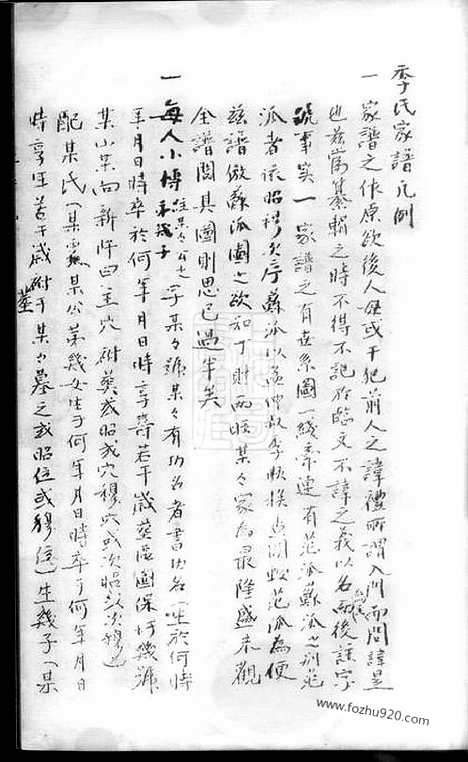 季氏家譜凡例
一 家譜之作原欲後人毋或干犯前人之諱禮所謂入門而問諱是
也茲當纂輯之時不得不記於臨文不諱之義以名爲綱而後註字
號事实一 家譜之有世系圖一綫牽連有范派蘇派之別范
派者依昭穆次序蘇派以孟仲叔季軼挨房開叙范派為便
茲譜倣蘇派圖之欲知丁財兩旺某々家為最隆盛未觀
全譜閱其圖則思已過半矣
一 每人小傳註某々公之子字某々號某々有功名者書功名生於何時
年月日時卒於何年月日時享壽若干歲葬某圖保何幾號
某山某向新阡曰主穴附葬或昭或穴穆穴或次昭或次穆
配某氏某處某公第幾女生于何年月日時卒于何年月日
時享年若干歲附于某々墓之或昭位或穆位生幾子某
葬
www.fozhu920.com